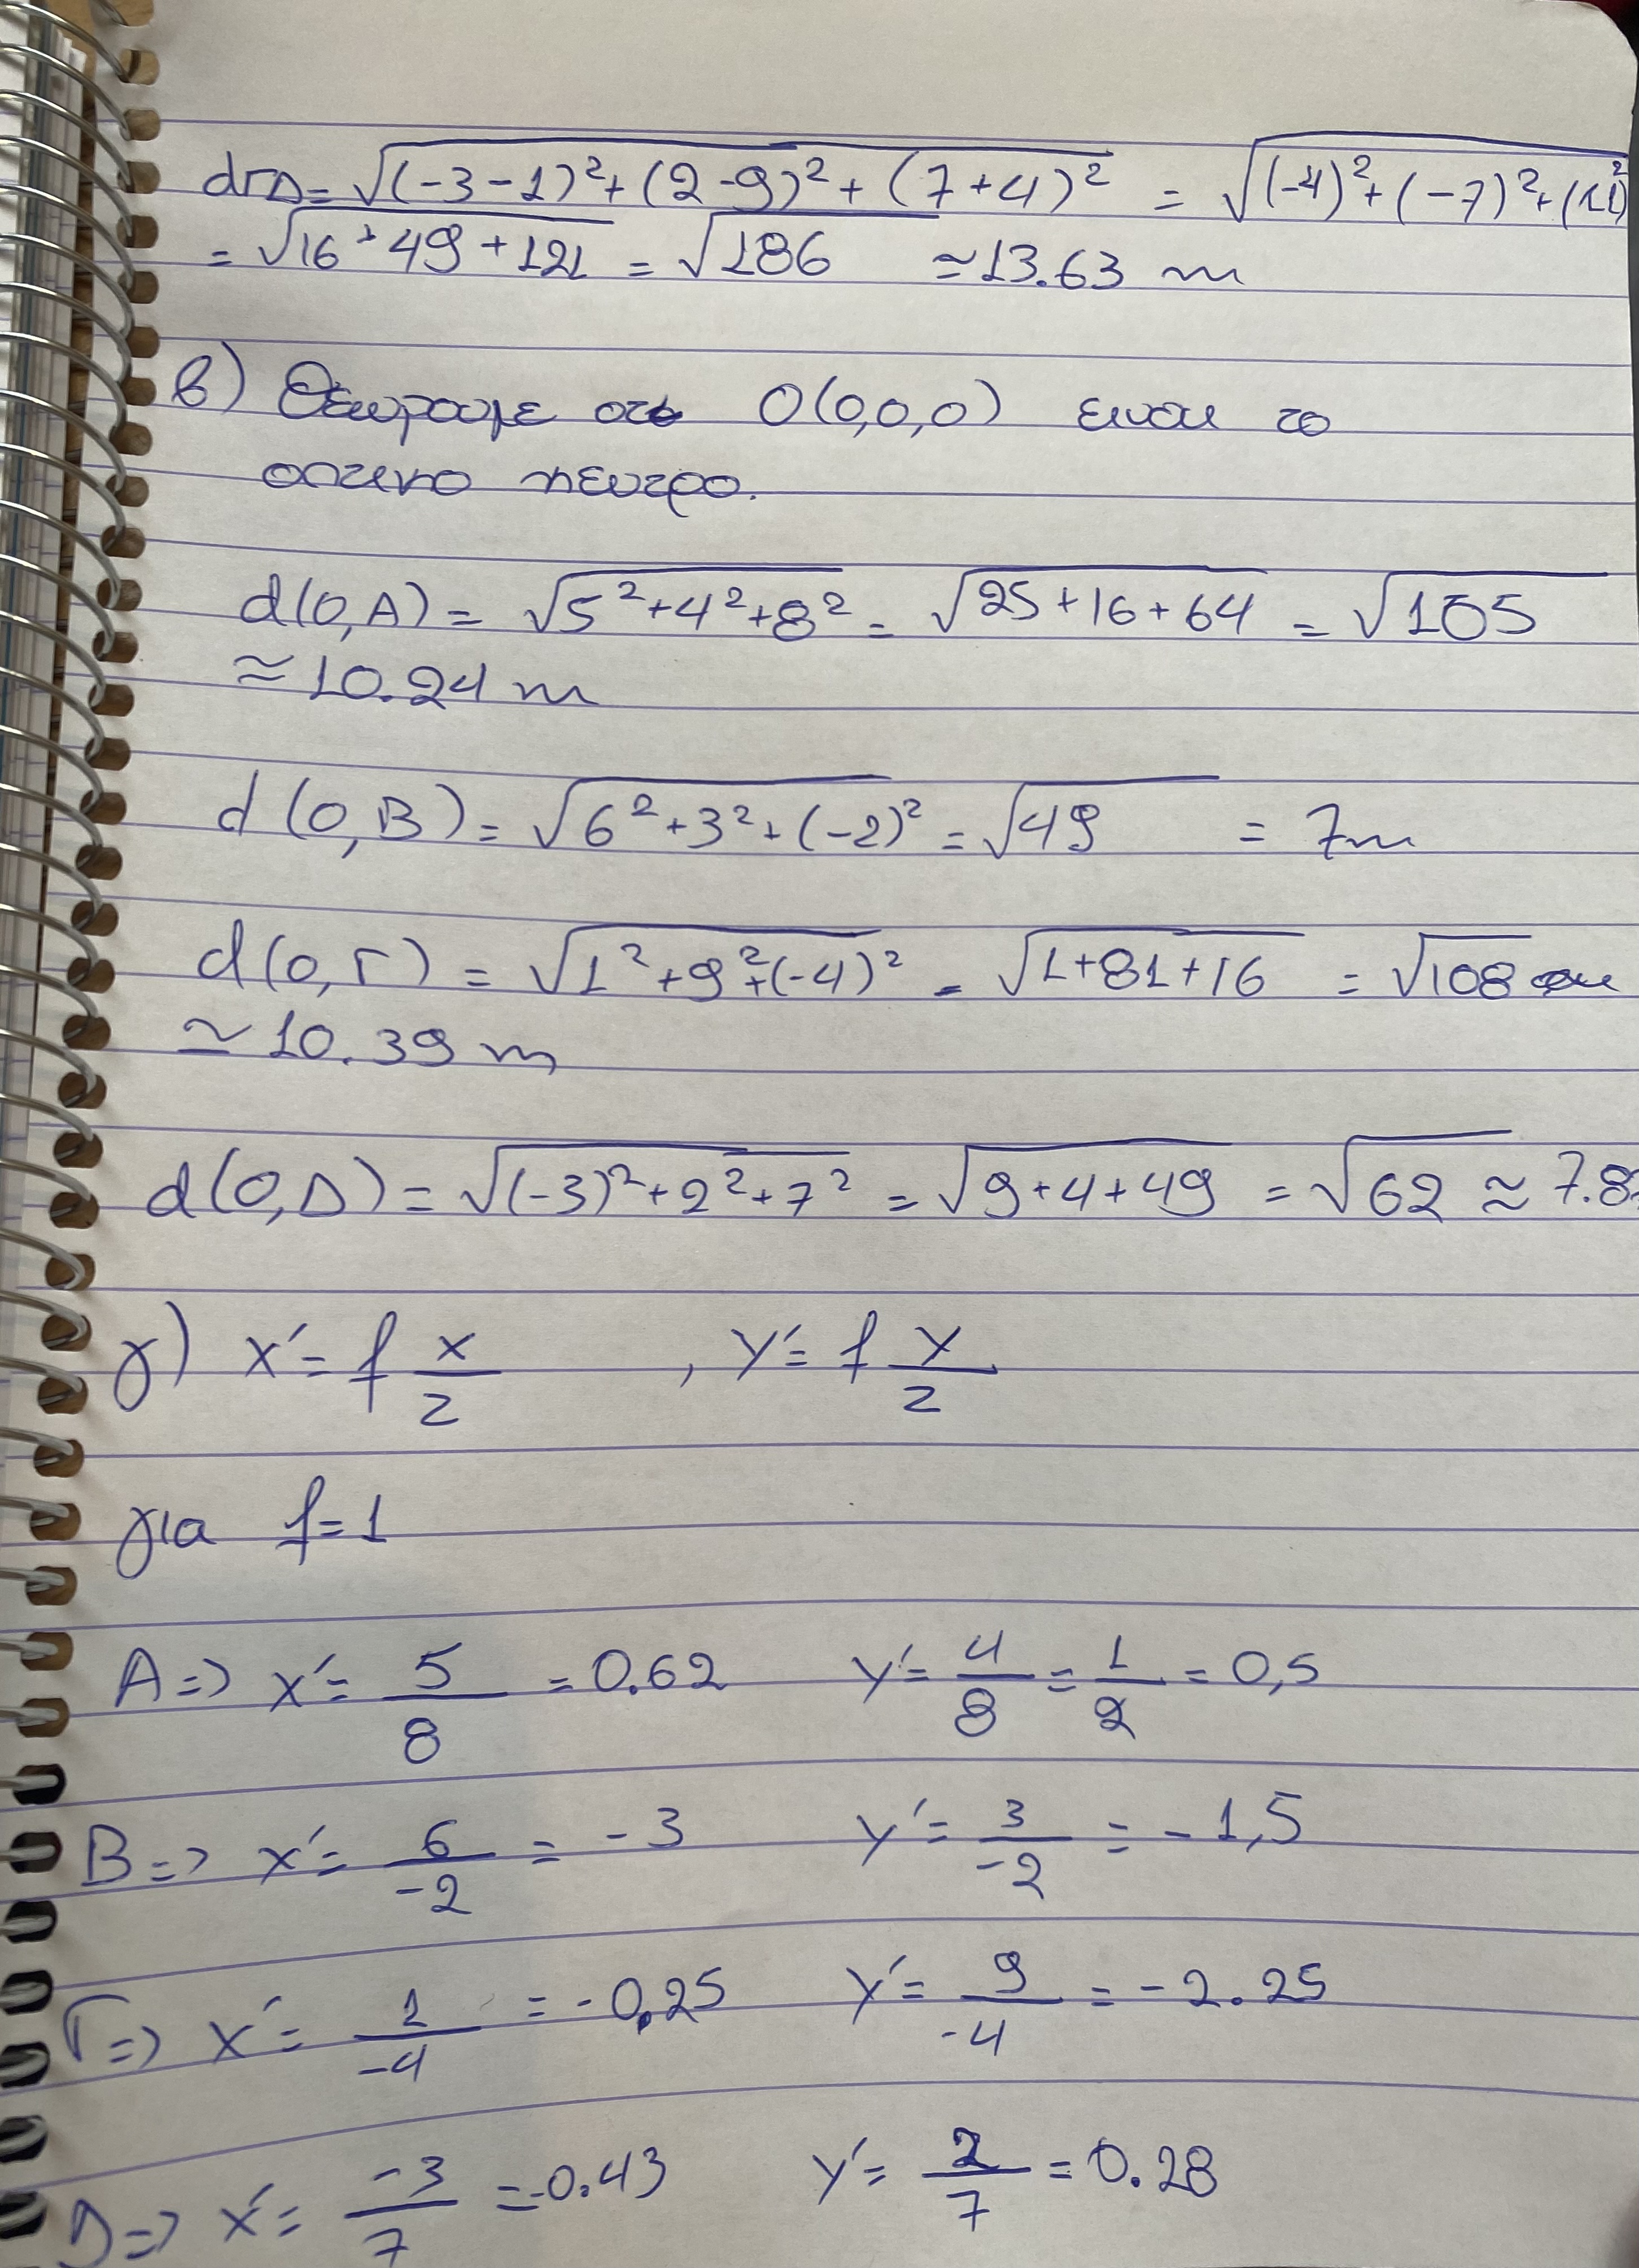 dΓΔ= √(-3-1)²+(2-9)²+(7+4)² = √(-4)²+(-7)²+(11)²
= √16+49+121 = √186 ≈13.63 m
β) Θεωρουμε οτι O(0,0,0) ειναι το
οπτικο κεντρο.
d(O,A) = √5²+4²+8² = √25+16+64 = √105
≈10.24 m
d(O,B) = √6²+3²+(-2)² = √49 = 7m
d(O,Γ) = √1²+9²+(-4)² = √1+81+16 = √108
≃ 10.39 m
d(O,Δ) = √(-3)²+2²+7² = √9+4+49 = √62 ≈ 7.8
γ) x′= f x/z , y′= f y/z
για f=1
A=> x′= 5/8 = 0.62 y′= 4/8 = 1/2 = 0,5
B=> x′= 6/-2 = -3 y′= 3/-2 = -1,5
Γ=> x′= 1/-4 = -0,25 y′= 9/-4 = -2.25
Δ=> x′= -3/7 =-0.43 y′= 2/7 = 0.28